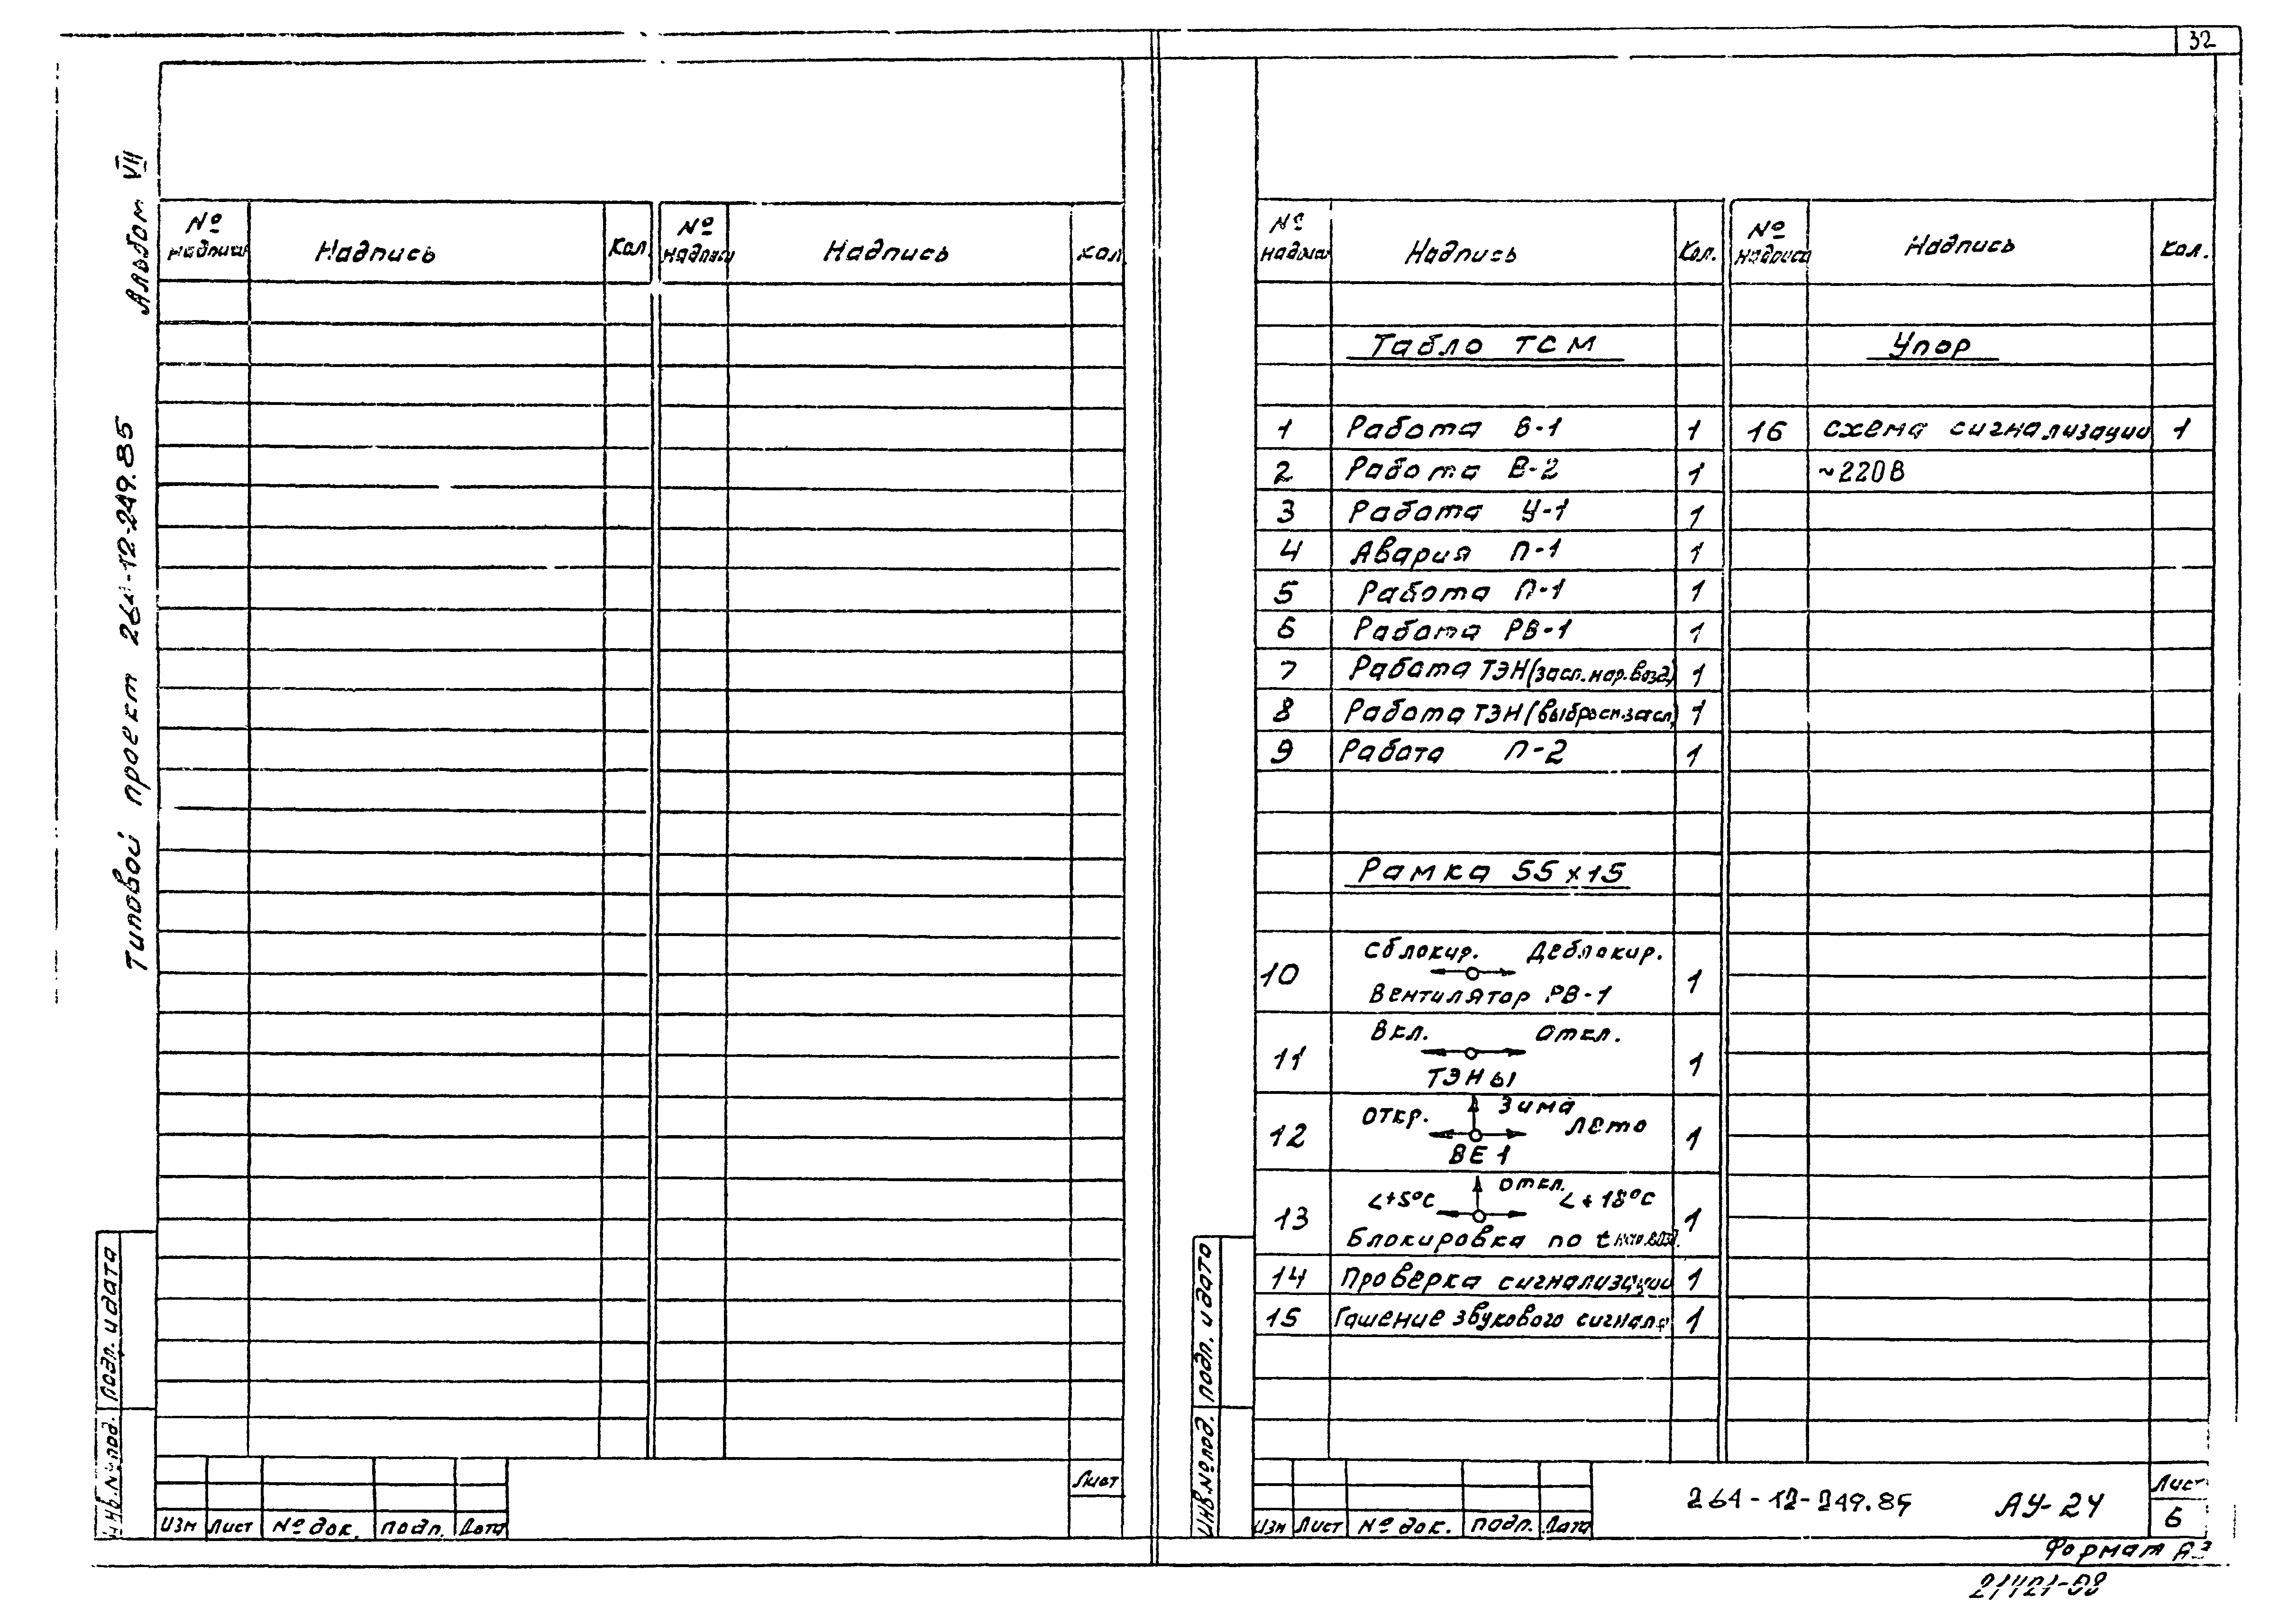 32
Альбом VII
Типовой проект 264-12-249.85
№ надписи Надпись Кол. № надписи Надпись Кол.
Подп. и дата
Инв.№ под.
Изм Лист № док. Подп. Дата
Лист
№ надписи Надпись Кол. № надписи Надпись Кол.
Табло ТСМ
Упор
1 Работа В-1 1
16 Схема сигнализации 1
2 Работа В-2 1
~220В
3 Работа У-1 1
4 Авария П-1 1
5 Работа П-1 1
6 Работа РВ-1 1
7 Работа ТЭН (засл. нар. возд.) 1
8 Работа ТЭН (выбросн. засл.) 1
9 Работа П-2 1
Рамка 55х15
Сблокир. Деблокир.
10 1
Вентилятор РВ-1
Вкл. Откл.
11 1
ТЭНы
Зима
Откр. Лето
12 1
ВЕ1
Откл.
<+5°С <+18°С
13 1
Блокировка по t нар.возд.
14 Проверка сигнализации 1
15 Гашение звукового сигнала 1
Подп. и дата
Инв.№ под.
Изм Лист № док. Подп. Дата
264-12-249.85 АУ-24
Лист
6
Формат А3
21421-08